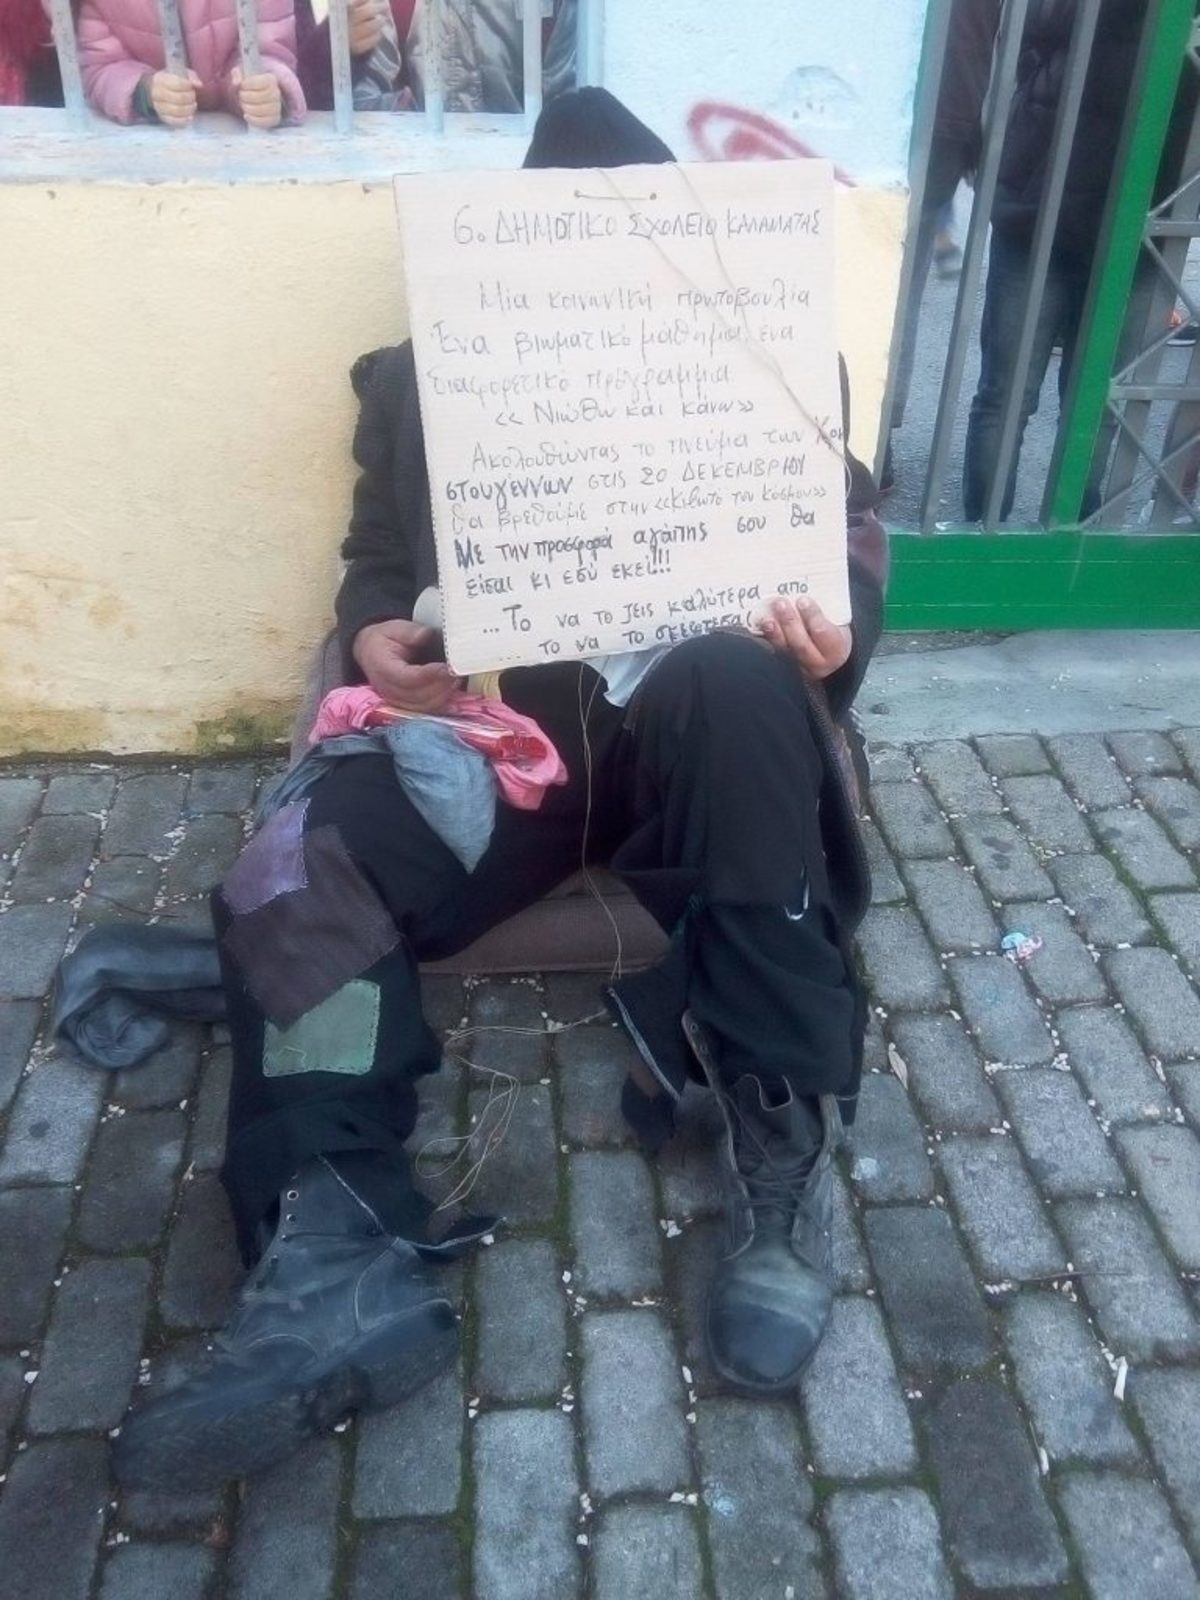 6ο ΔΗΜΟΤΙΚΟ ΣΧΟΛΕΙΟ ΚΑΛΑΜΑΤΑΣ
Μια κοινωνική πρωτοβουλία
Ένα βιωματικό μάθημα, ένα
διαφορετικό πρόγραμμα
«Νιώθω και κάνω»
Ακολουθώντας το πνεύμα των Χρι
στουγέννων στις 20 ΔΕΚΕΜΒΡΙΟΥ
θα βρεθούμε στην «Κιβωτό του Κόσμου»
Με την προσφορά αγάπης σου θα
είσαι κι εσύ εκεί!!!
...Το να το ζεις καλύτερα από
... το να το σκέφτεσαι